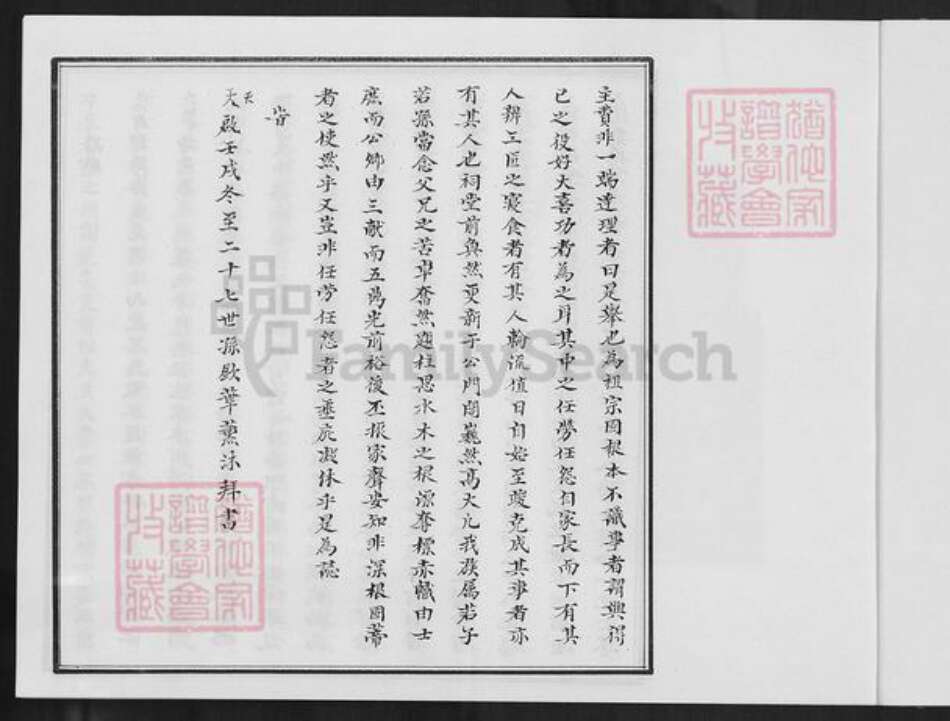 主費非一端達理者曰是舉也為祖宗固根本不識事者謂興得
已之役好大喜功者為之耳其中之任勞任怨自家長而下有其
人辨三匝之寢食者有其人輪流值日自始至竣克成其事者亦
有其人也祠堂前奐然更新于公門閭巍然高大凡我族屬若子
若孫當念父兄之苦卓奮然題柱思水木之根源奪標赤幟由士
庶而公卿由三献而五為光前裕後丕振家聲安知非深根固蒂
者之使然乎又豈非任勞任怨者之垂庇凝休乎是為誌
皆
天
天啟壬戌冬至二十七世孫 華薰沐拜書
猶他家
譜學會
收藏
猶他家
譜學會
收藏
FamilySearch